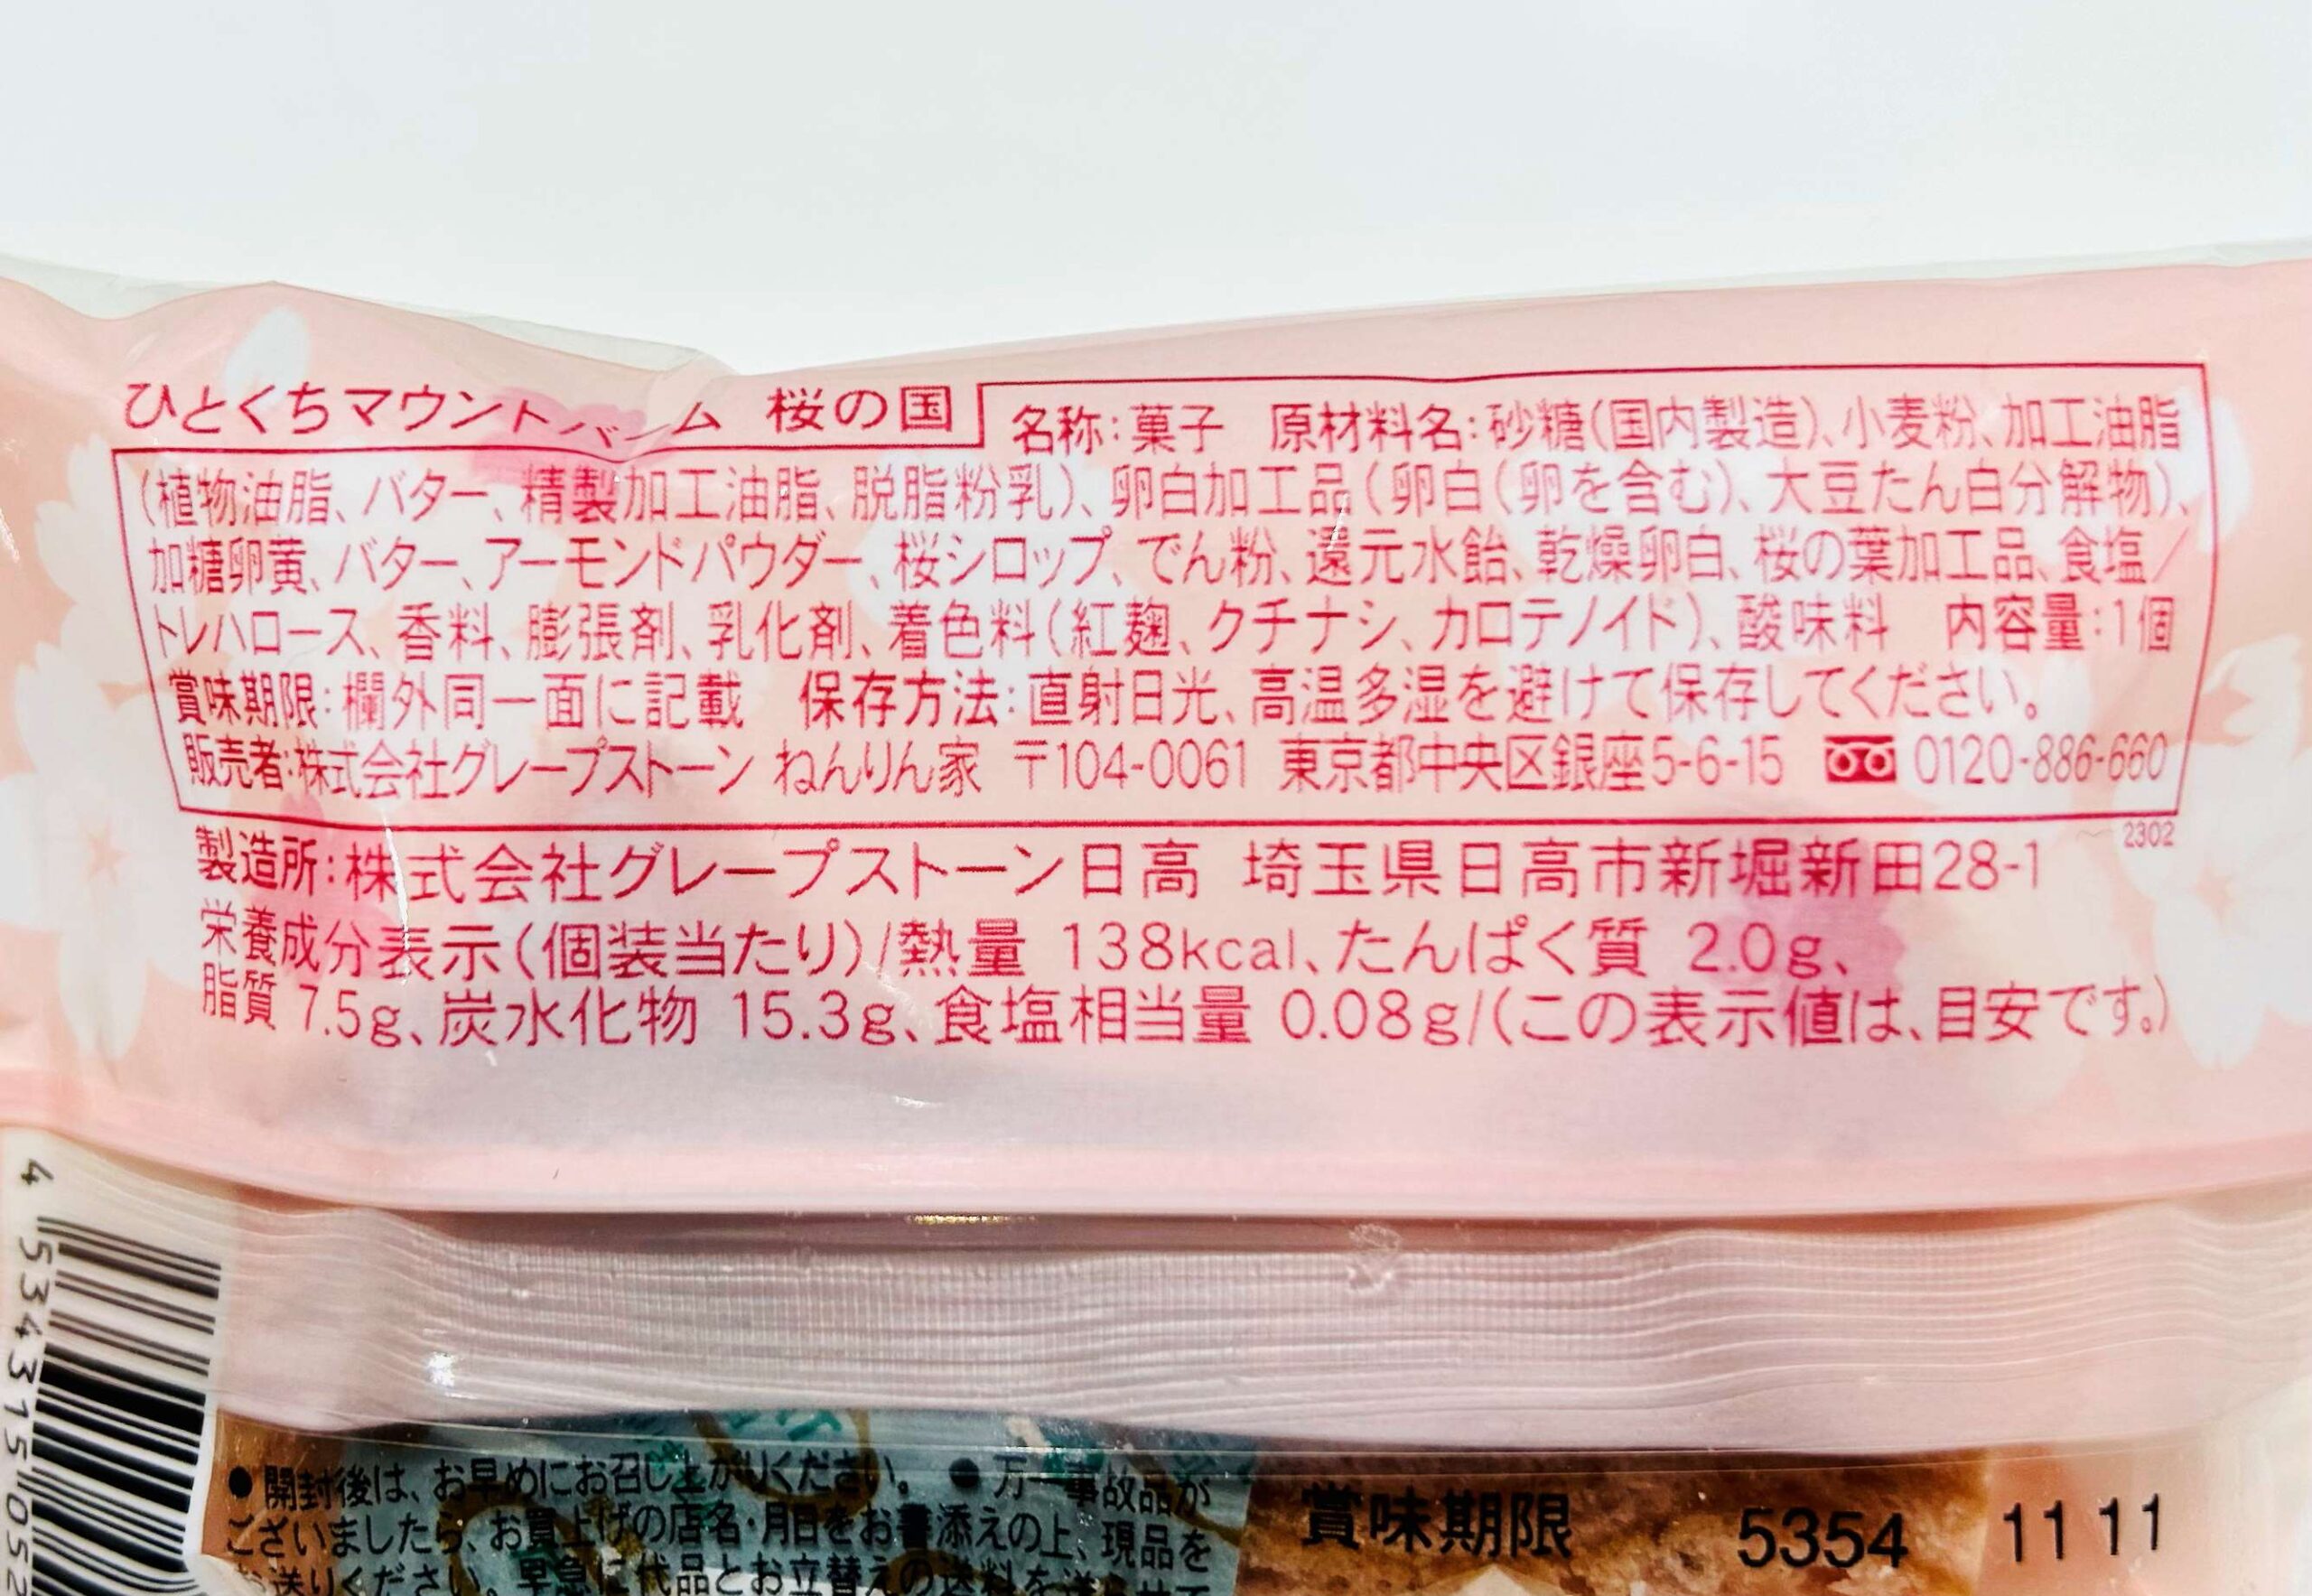 ひとくちマウントバーム 桜の国
名称:菓子 原材料名:砂糖(国内製造)、小麦粉、加工油脂
(植物油脂、バター、精製加工油脂、脱脂粉乳)、卵白加工品(卵白(卵を含む)、大豆たん白分解物)、
加糖卵黄、バター、アーモンドパウダー、桜シロップ、でん粉、還元水飴、乾燥卵白、桜の葉加工品、食塩/
トレハロース、香料、膨張剤、乳化剤、着色料(紅麹、クチナシ、カロテノイド)、酸味料 内容量:1個
賞味期限:欄外同一面に記載 保存方法:直射日光、高温多湿を避けて保存してください。
販売者:株式会社グレープストーン ねんりん家 〒104-0061 東京都中央区銀座5-6-15 0120-886-660
2302
製造所:株式会社グレープストーン日高 埼玉県日高市新堀新田28-1
栄養成分表示(個装当たり)/熱量 138kcal、たんぱく質 2.0g、
脂質 7.5g、炭水化物 15.3g、食塩相当量 0.08g/(この表示値は、目安です。)
4 534315 052
●開封後は、お早めにお召し上がりください。●万一事故品が
ございましたら、お買上げの店名・月日をお書添えの上、現品を
お送りください。早急に代品とお立替えの送料を
賞味期限 5354 11 11